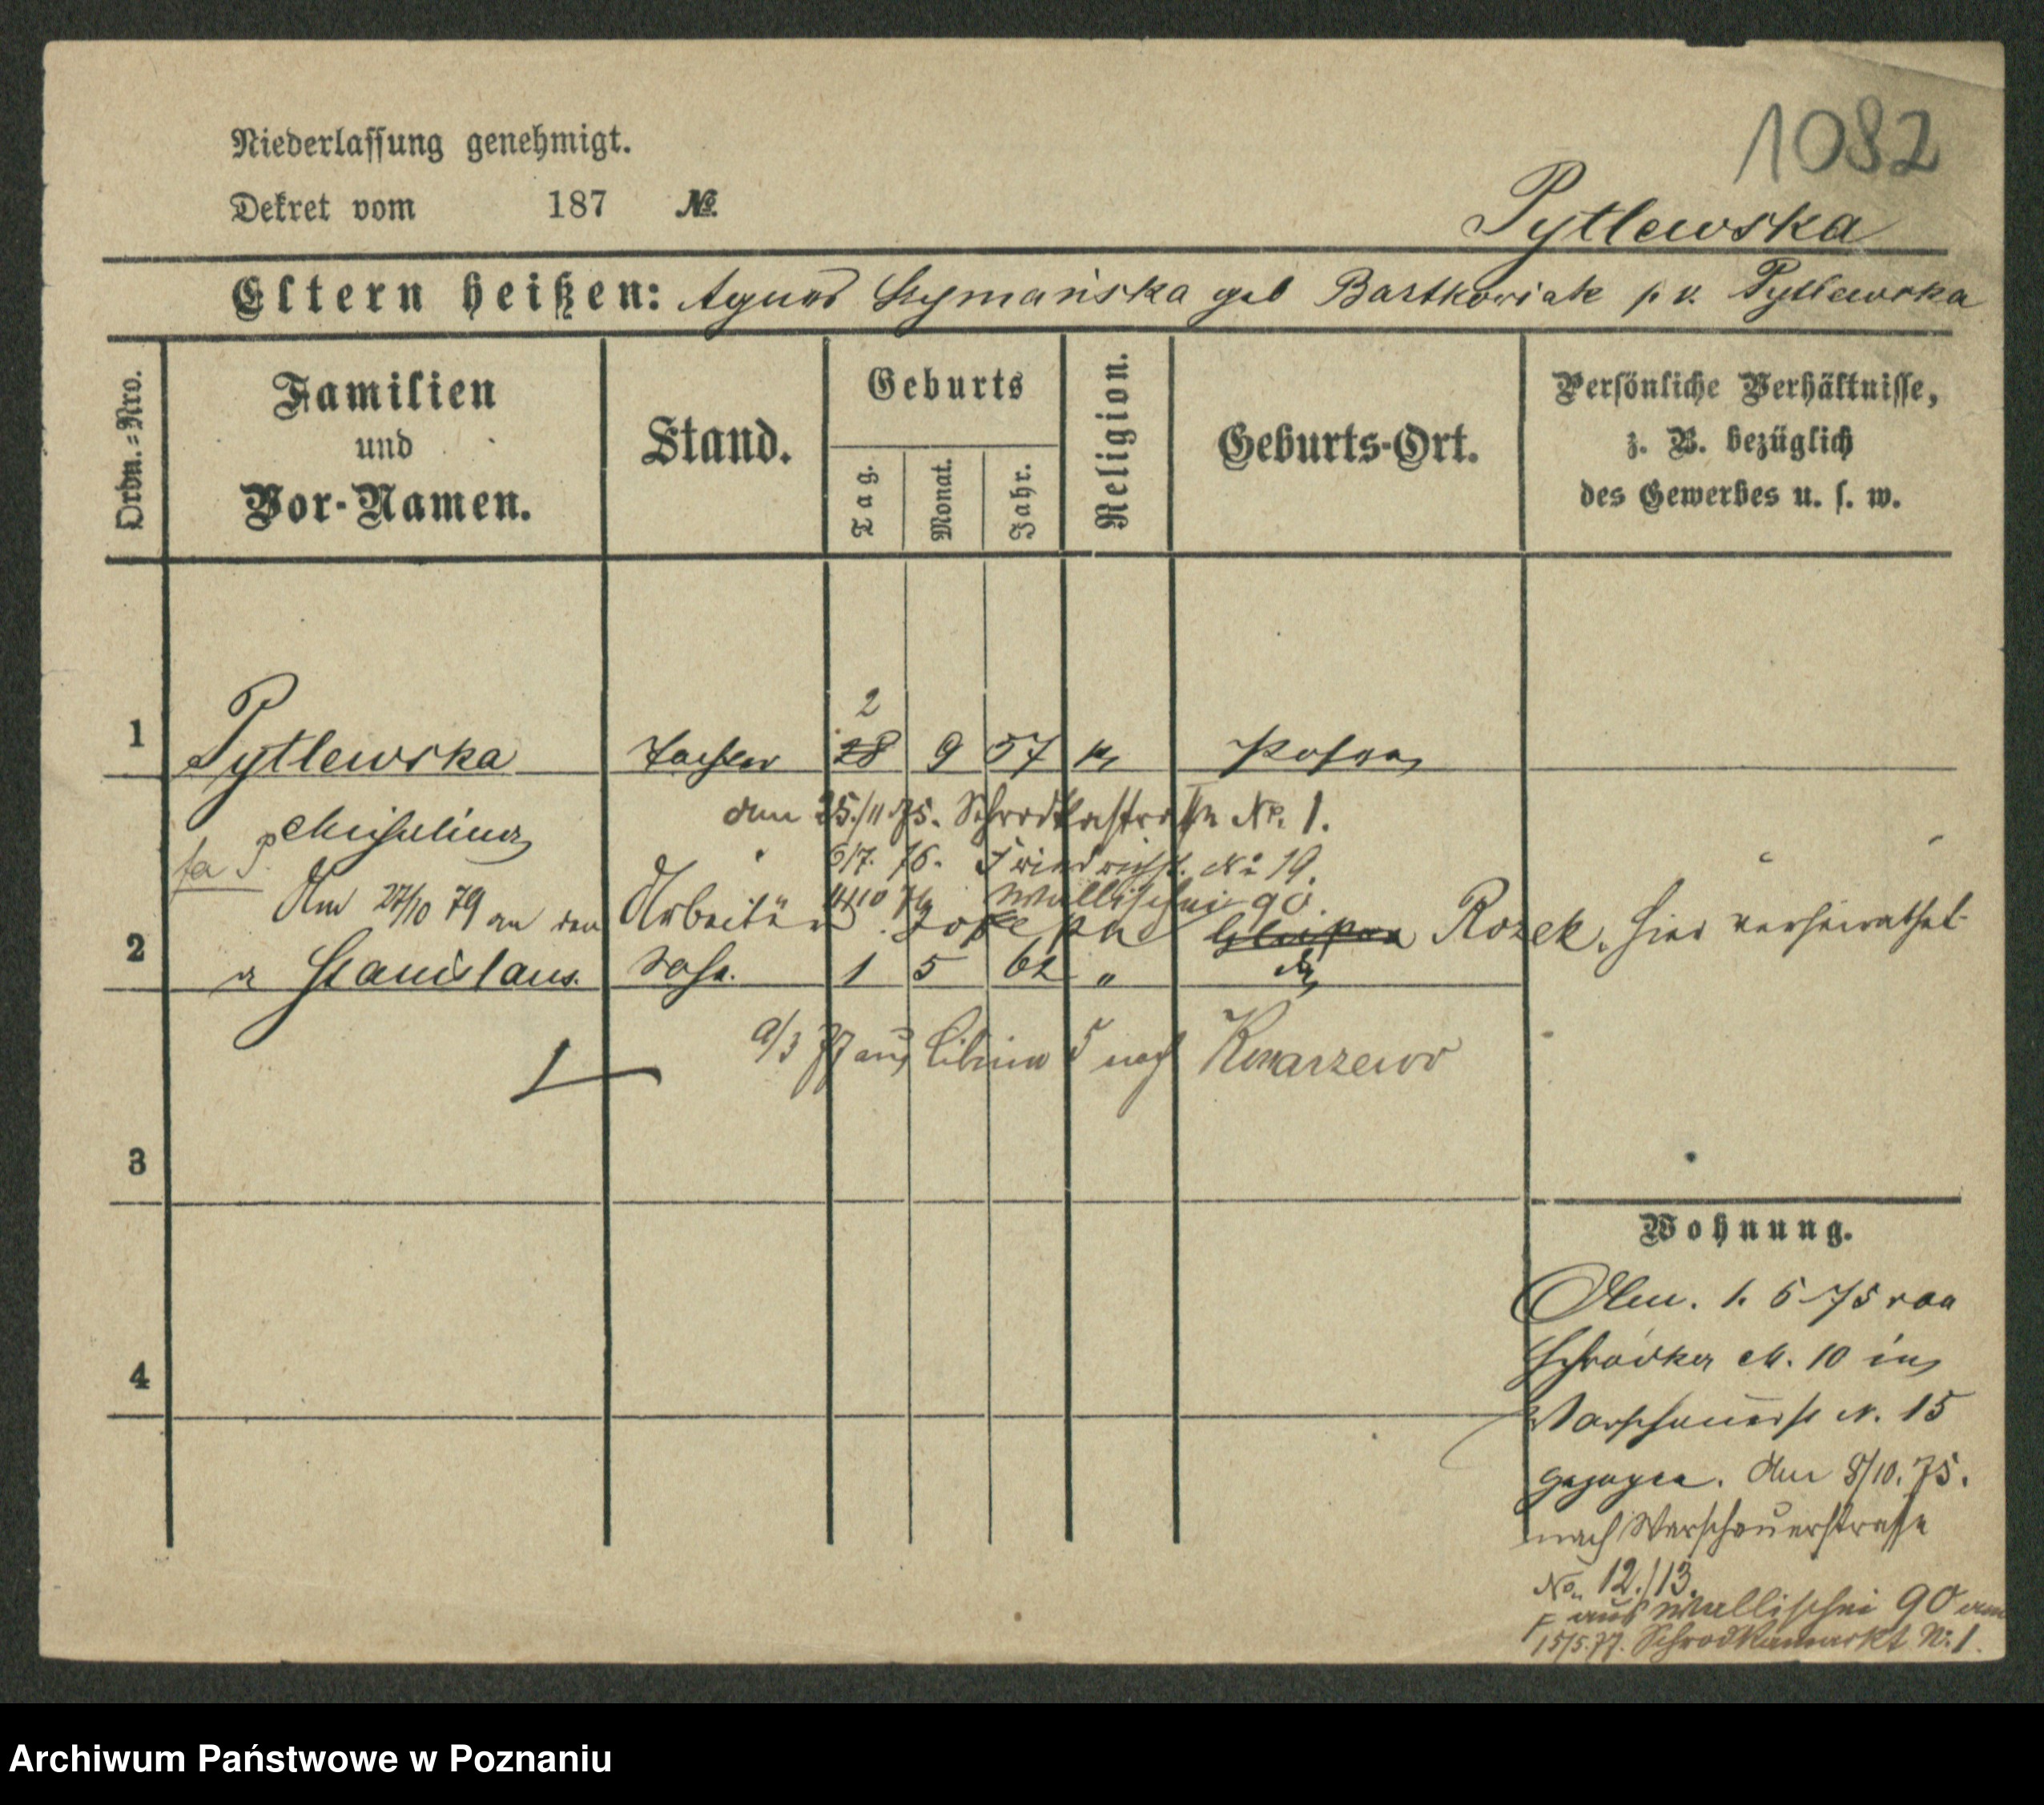 1082
Niederlassung genehmigt.
Dekret vom 187 №.
Pytlewska
Eltern heißen: Agnes Szymańska geb Bartkowiak p. v. Pytlewska
Ordn.=Nro.
Familien
und
Vor-Namen.
Stand.
Geburts
Tag.
Monat.
Jahr.
Religion.
Geburts-Ort.
Persönliche Verhältnisse,
z. B. bezüglich
des Gewerbes u. s. w.
2
1 Pytlewska Tochter 28 9 57 k, Posen
Michalina
den 25./11. 75. Schrodkastraße No. 1.
6/7. 76. Friedrichst. No 19.
14/10 76 Wallischei 90.
Am 27/10 79 an den Arbeiter Joseph Rozek, hier verheirathet
2 Stanislaus. Sohn. 1 5 62 "
9/3 77 aus 5 nach Komarzewo
3
4
Wohnung.
Am. 1. 6 75 von
Schrodka N. 10 in
Warschauerst N. 15
gezogen. Am 8/10. 75.
nach Warschauerstrasse
No. 12./13.
aus Wallischei 90 am
15/5. 77. Schrodkamarkt No. 1.
Archiwum Państwowe w Poznaniu